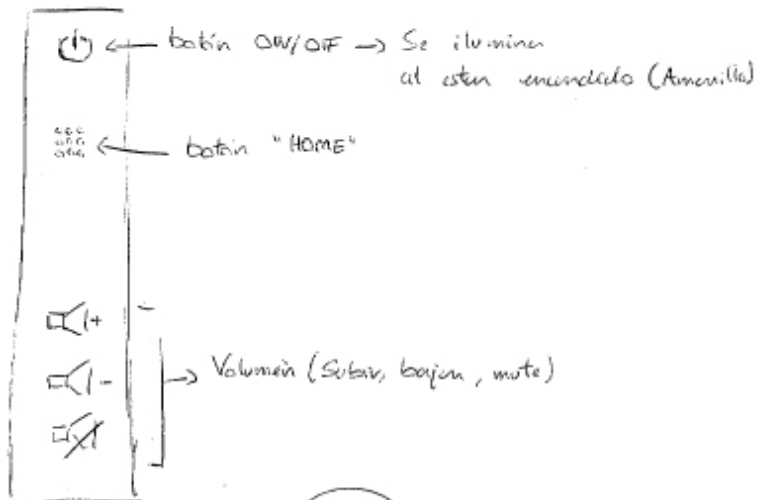 botón ON/OFF → Se ilumina
al estar encendido (Amarilla)
botón "HOME"
+
-
Volumén (Subir, bajar, mute)